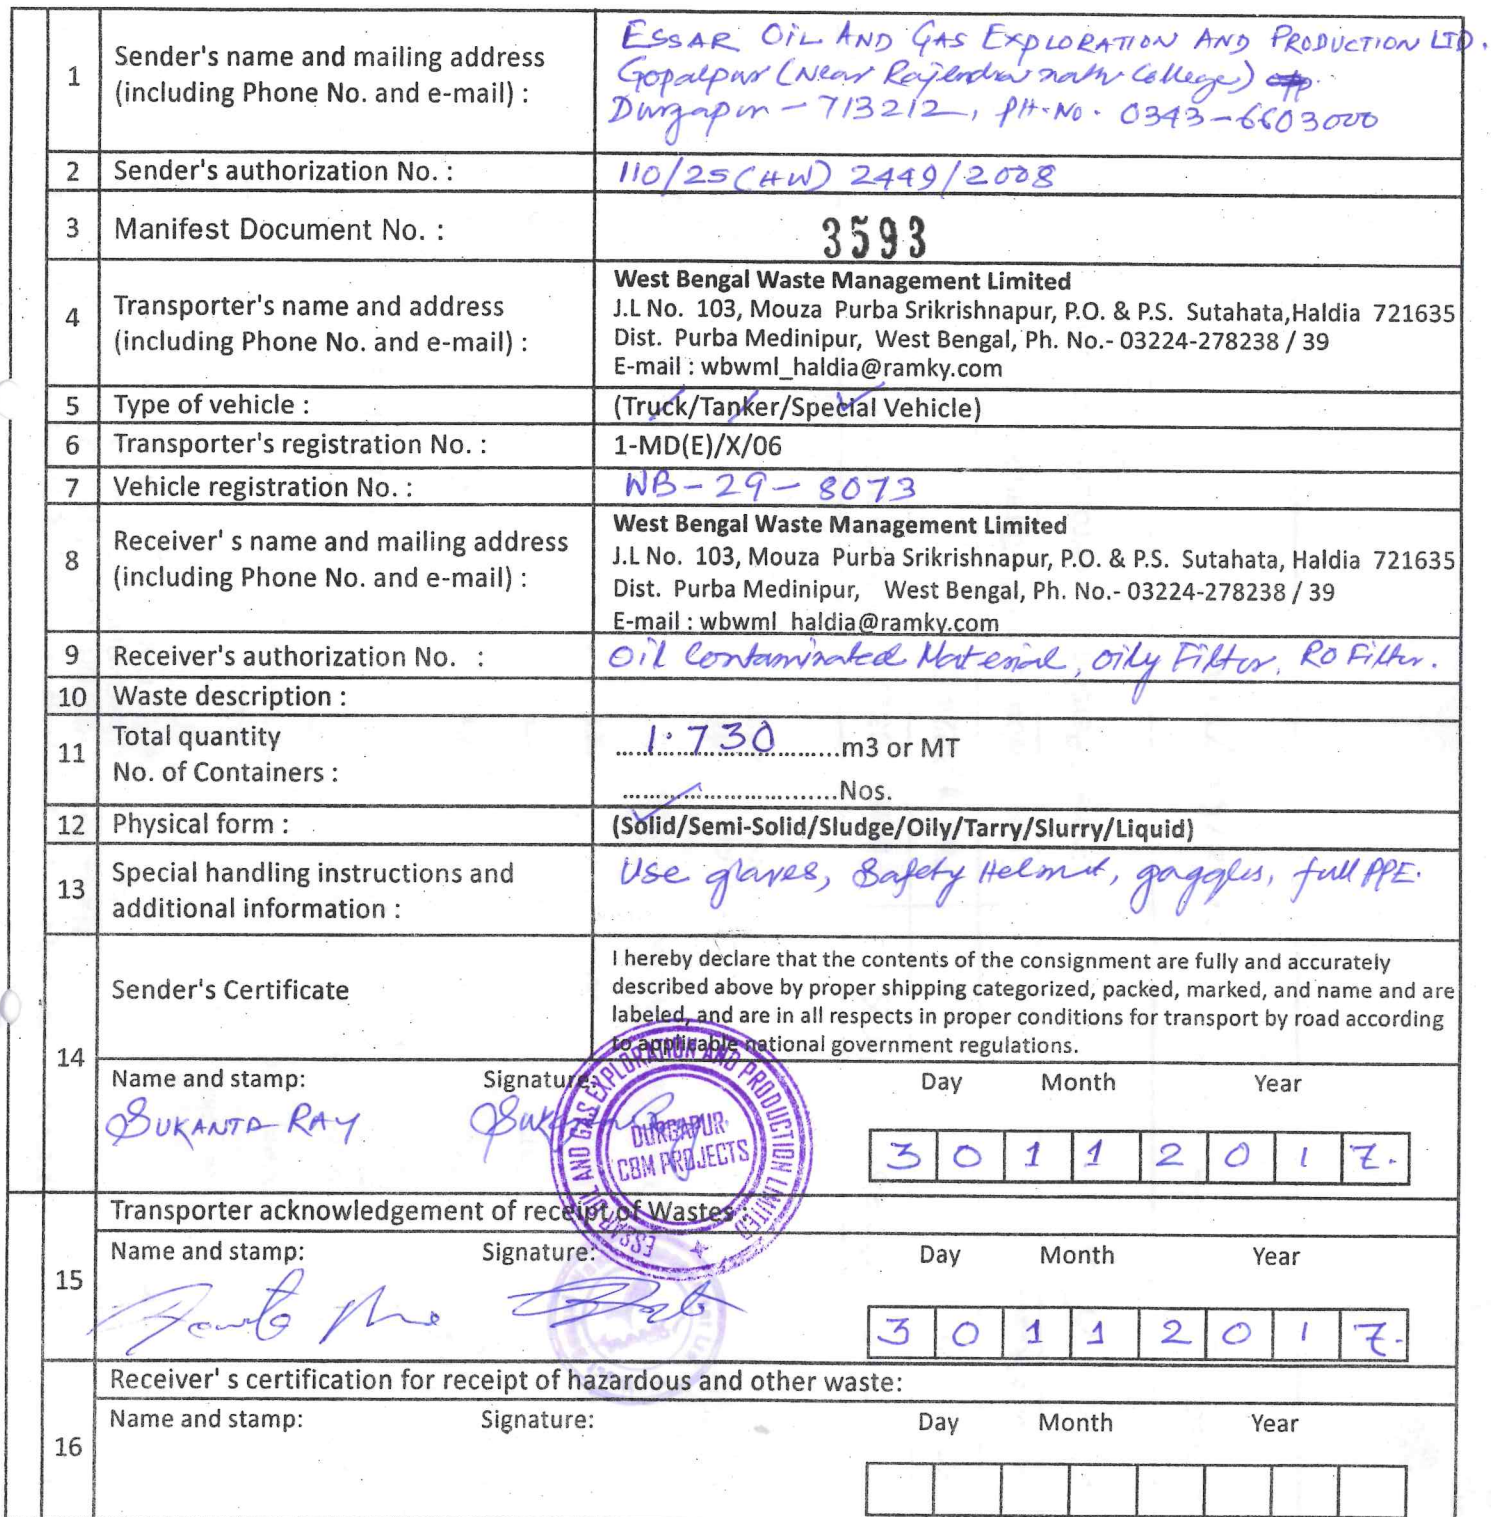 1
Sender's name and mailing address
(including Phone No. and e-mail) :
ESSAR OIL AND GAS EXPLORATION AND PRODUCTION LTD.
Gopalpur (Near Rajendra nath College)
Durgapur - 713212, PH. NO. 0343-6603000
2 Sender's authorization No. : 110/25(HW) 2449/2008
3 Manifest Document No. : 3593
4
Transporter's name and address
(including Phone No. and e-mail) :
West Bengal Waste Management Limited
J.L No. 103, Mouza Purba Srikrishnapur, P.O. & P.S. Sutahata,Haldia 721635
Dist. Purba Medinipur, West Bengal, Ph. No.- 03224-278238 / 39
E-mail : wbwml_haldia@ramky.com
5 Type of vehicle : (Truck/Tanker/Special Vehicle)
6 Transporter's registration No. : 1-MD(E)/X/06
7 Vehicle registration No. : WB-29-8073
8
Receiver' s name and mailing address
(including Phone No. and e-mail) :
West Bengal Waste Management Limited
J.L No. 103, Mouza Purba Srikrishnapur, P.O. & P.S. Sutahata, Haldia 721635
Dist. Purba Medinipur, West Bengal, Ph. No.- 03224-278238 / 39
E-mail : wbwml_haldia@ramky.com
9 Receiver's authorization No. : Oil Contaminated Material, oily Filter, RO Filter.
10 Waste description :
11
Total quantity
No. of Containers :
1.730 m3 or MT
Nos.
12 Physical form : (Solid/Semi-Solid/Sludge/Oily/Tarry/Slurry/Liquid)
13
Special handling instructions and
additional information :
Use glaves, Safety Helmet, goggles, full PPE.
14
Sender's Certificate
I hereby declare that the contents of the consignment are fully and accurately
described above by proper shipping categorized, packed, marked, and name and are
labeled, and are in all respects in proper conditions for transport by road according
to applicable national government regulations.
Name and stamp: Signature: Day Month Year
SUKANTA RAY Sukanta Ray
3 0 1 1 2 0 1 7.
ESSAR OIL AND GAS EXPLORATION AND PRODUCTION LIMITED
DURGAPUR
CBM PROJECTS
15
Transporter acknowledgement of receipt of Wastes :
Name and stamp: Signature: Day Month Year
3 0 1 1 2 0 1 7.
16
Receiver' s certification for receipt of hazardous and other waste:
Name and stamp: Signature: Day Month Year